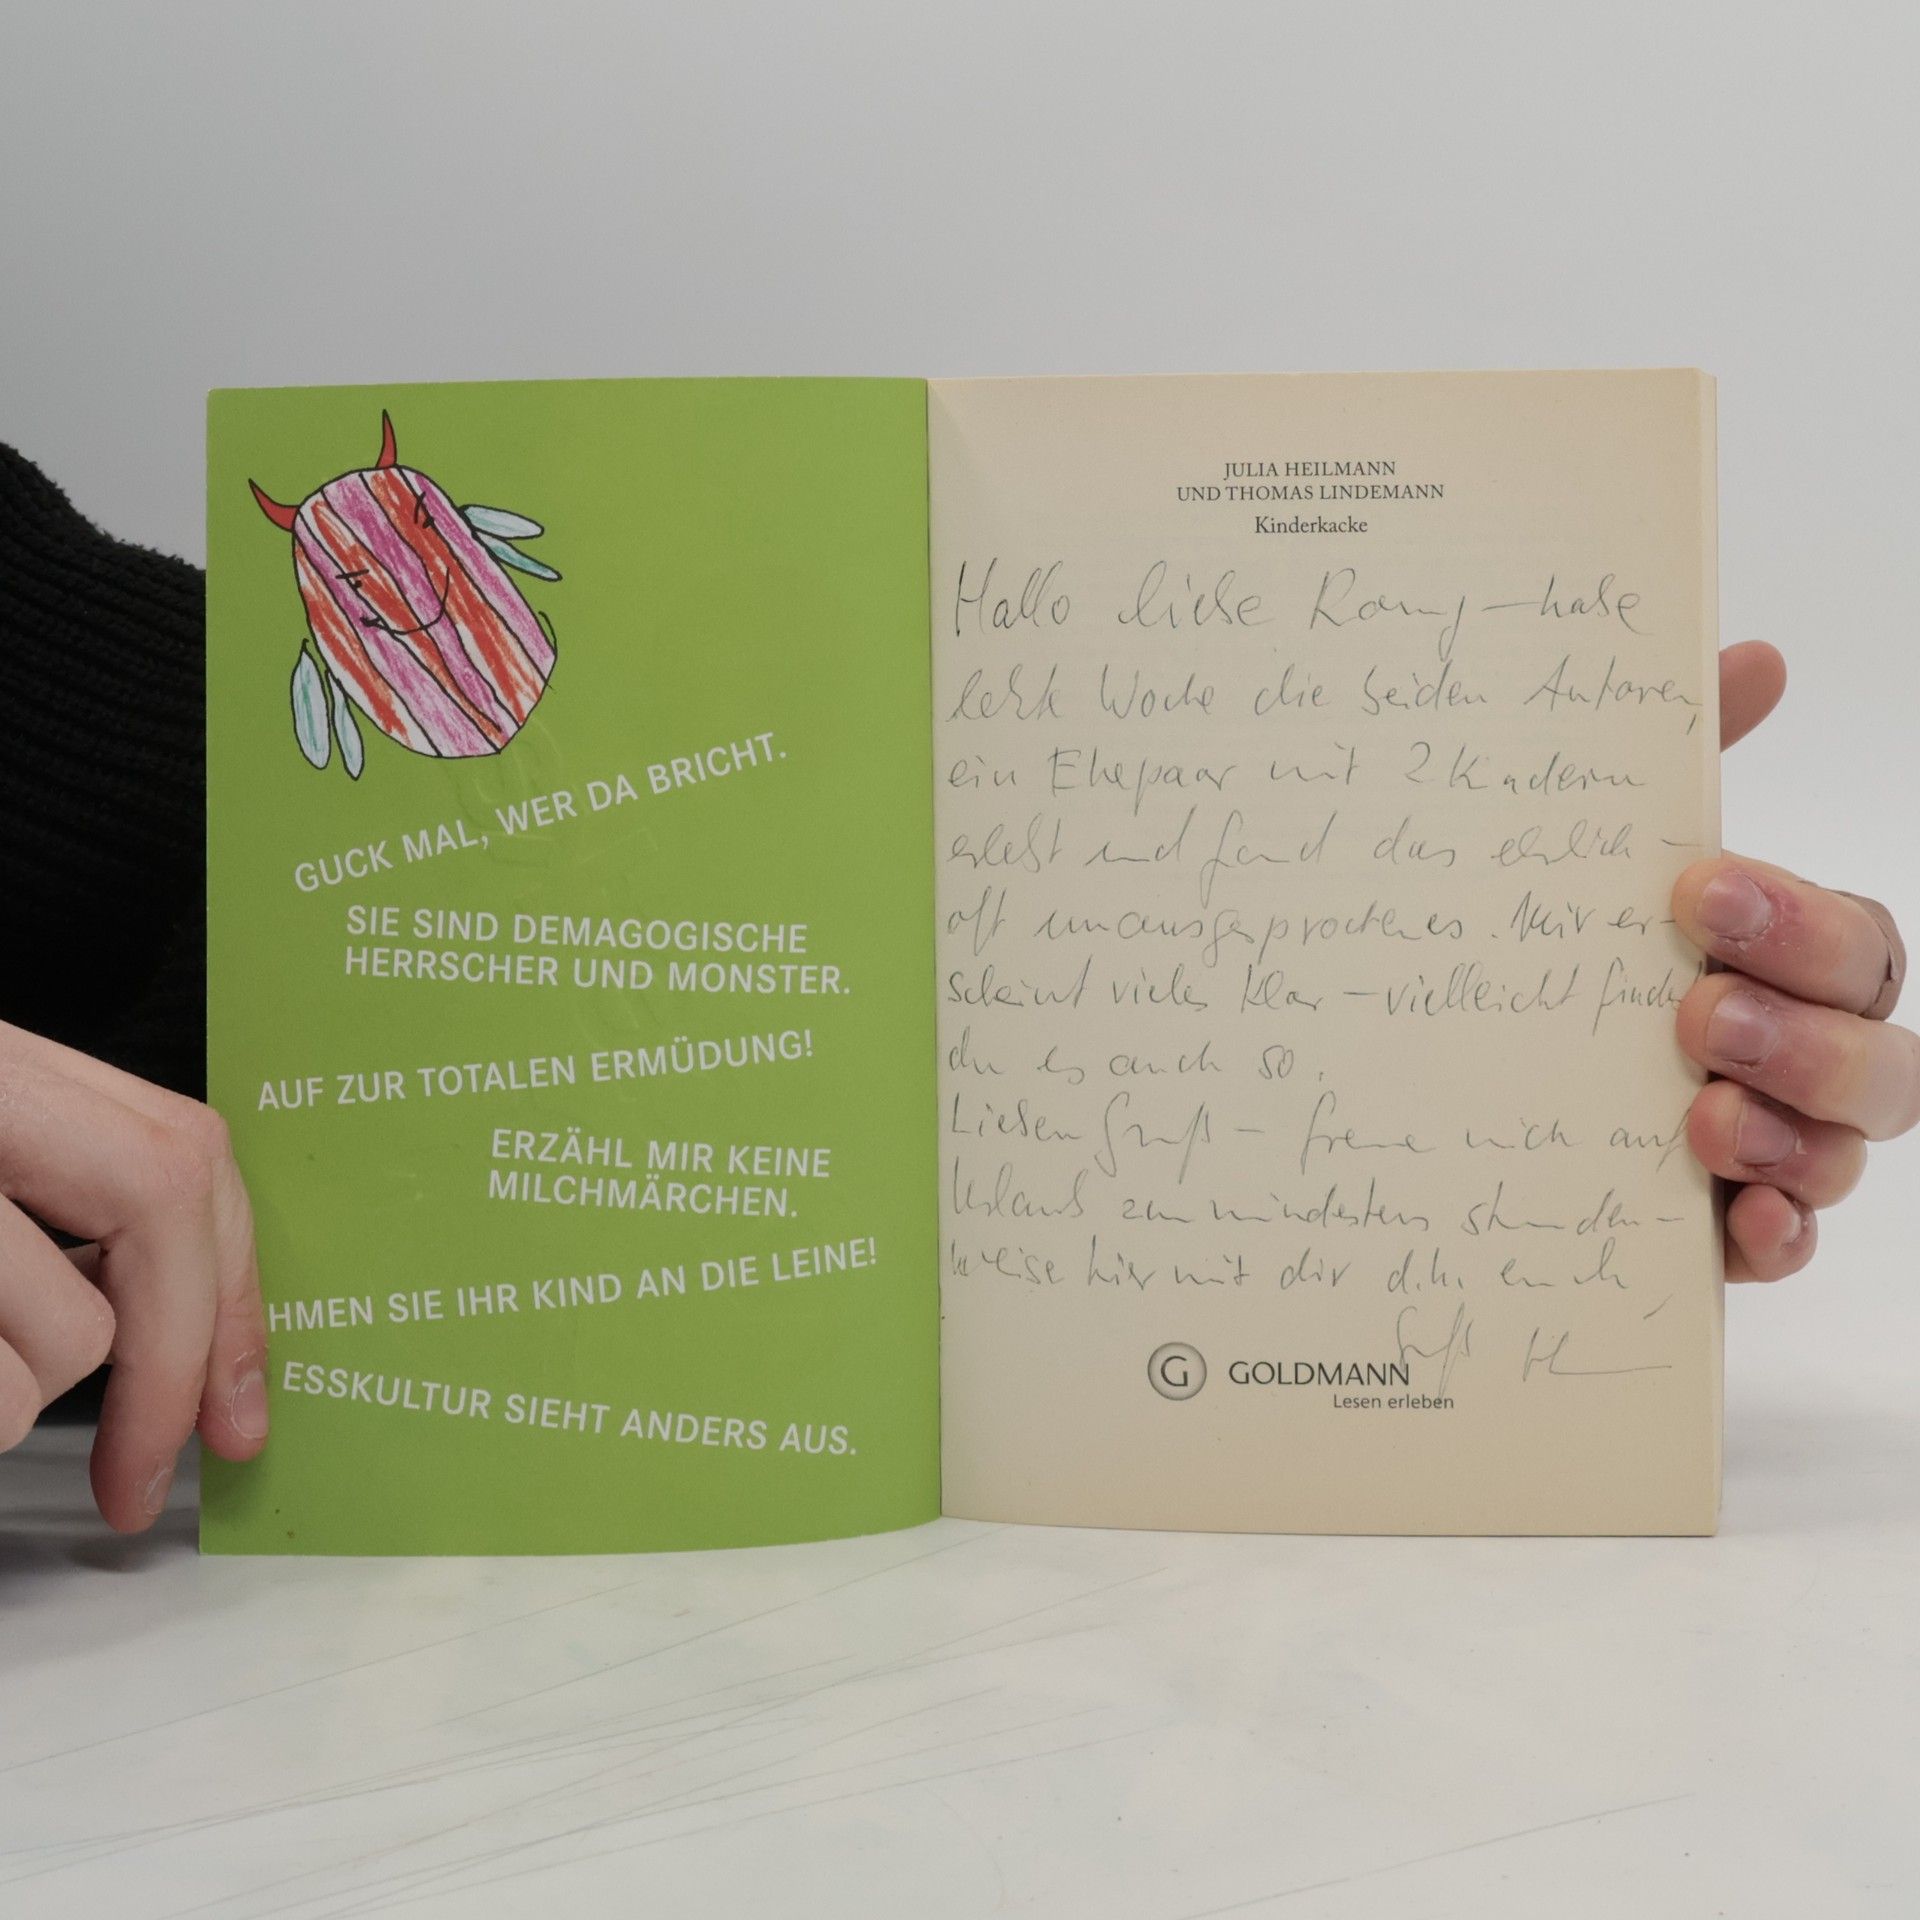 GUCK MAL, WER DA BRICHT.
SIE SIND DEMAGOGISCHE
HERRSCHER UND MONSTER.
AUF ZUR TOTALEN ERMÜDUNG!
ERZÄHL MIR KEINE
MILCHMÄRCHEN.
HMEN SIE IHR KIND AN DIE LEINE!
ESSKULTUR SIEHT ANDERS AUS.
JULIA HEILMANN
UND THOMAS LINDEMANN
Kinderkacke
Hallo liebe – habe
letzte Woche die beiden Autoren,
ein Ehepaar mit 2 Kindern
erlebt und fand das ehrlich –
oft unausgesprochenes. Mir er-
scheint vieles klar – vielleicht findest
du es auch so.
Lieben Gruß – freue mich auf
Urlaub zumindestens stunden-
weise hier mit dir d.h. euch
Gruß
G GOLDMANN
Lesen erleben